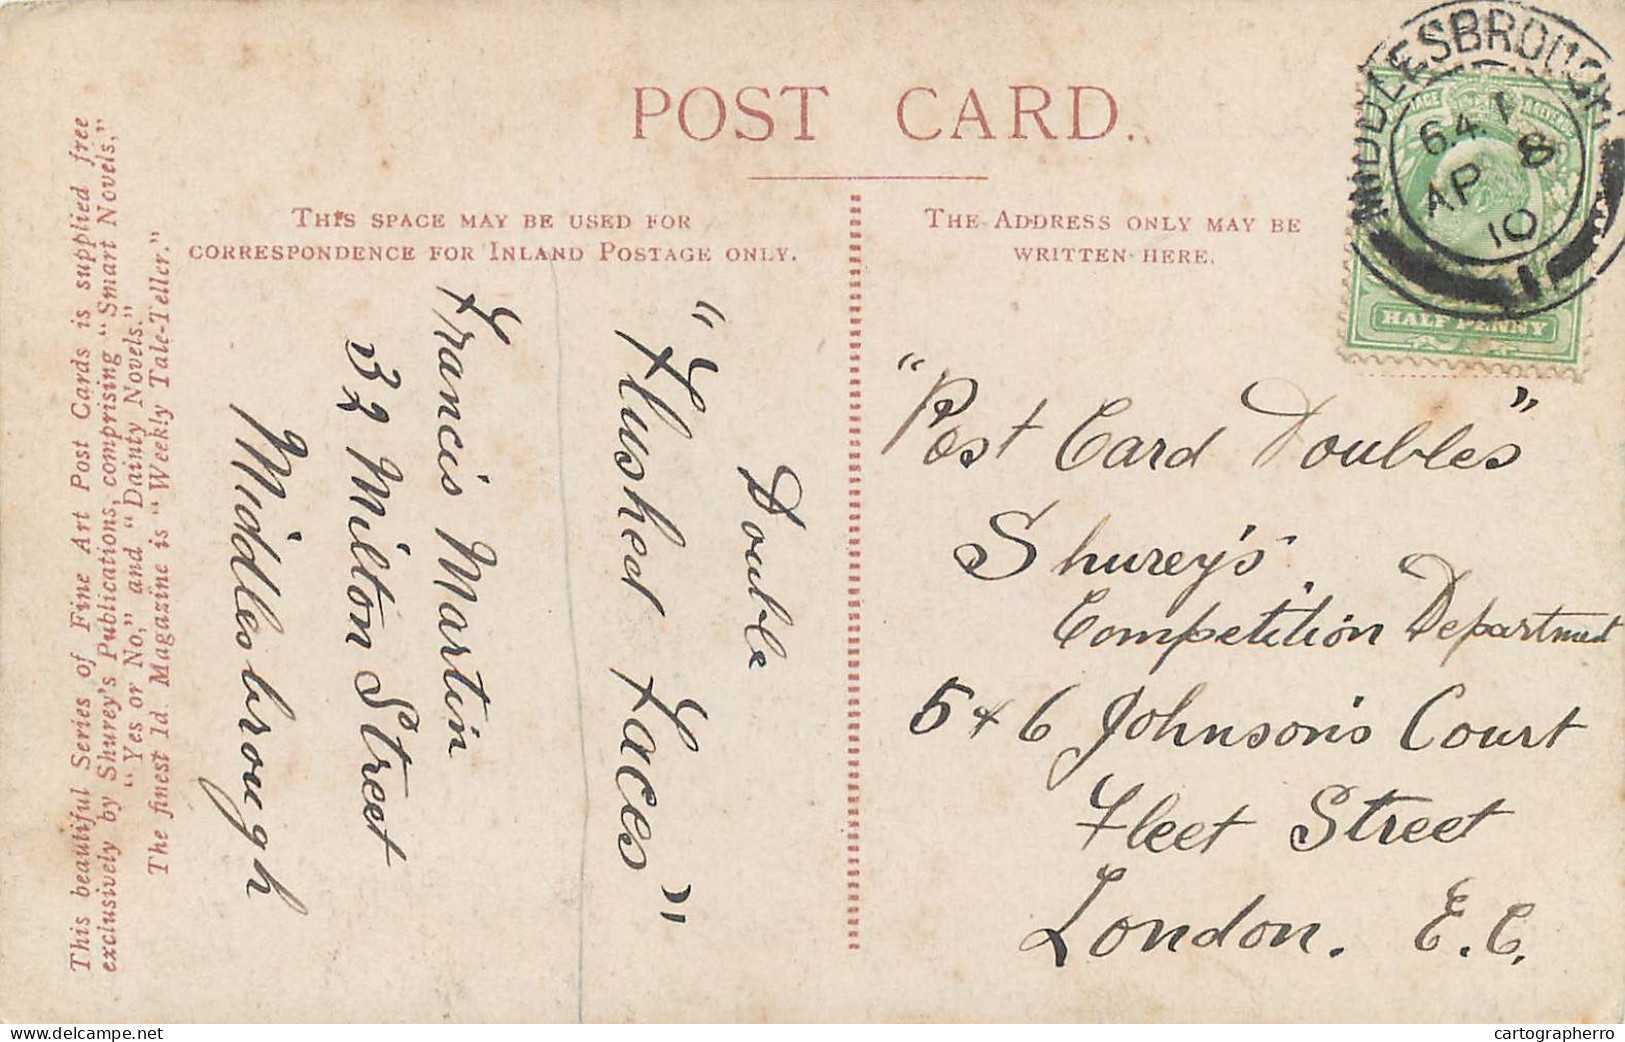 POST CARD.
THIS SPACE MAY BE USED FOR
CORRESPONDENCE FOR INLAND POSTAGE ONLY.
THE ADDRESS ONLY MAY BE
WRITTEN HERE.
This beautiful Series of Fine Art Post Cards is supplied free
exclusively by Shurey's Publications, comprising "Smart Novels,"
"Yes or No," and "Dainty Novels."
The finest 1d. Magazine is "Weekly Tale-Teller."
Double
"Flushed Faces"
Francis Martin
32 Milton Street
Middlesbrough
"Post Card Doubles"
Shurey's
Competition Department
5 & 6 Johnson's Court
Fleet Street
London. E.C.
MIDDLESBROUGH
AP 8
10
11
HALF PENNY
cartographerro